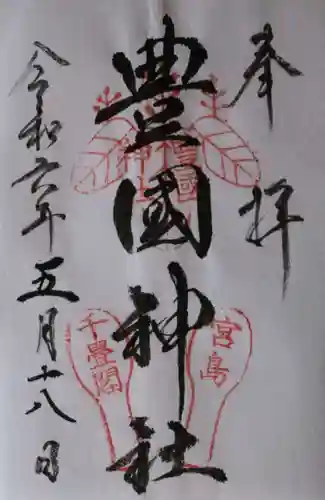 奉拝
豊國神社
令和六年五月十八日
豊國
神社
宮島
千畳閣